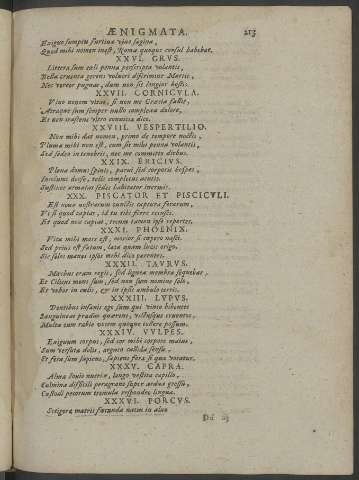 ÆNIGMATA. 213
Exiguo sumptu furtiua viuo sagina,
Quod mihi nomen inest, Romæ quoque consul habebat.
XXVI. GRVS.
Littera sum cæli penna perscripta volantis,
Bella cruenta gerens volucri discrimine Martis,
Nec vereor pugnas, dum non sit longior hostis.
XXVII. CORNICVLA.
Viuo nouem vitas, si non me Græcia fallit,
Atraque sum semper nullo compulsa dolore,
Et non irascens vltro conuicia dico.
XXVIII. VESPERTILIO.
Non mihi dat nomen, primo de tempore noctis,
Pluma mihi non est, cum sit mihi penna volantis,
Sed redeo in tenebris, nec me committo diebus.
XXIX. ERICIVS.
Plena domus spinis, parui sed corporis hospes,
Incolumi dorso, telis complexus acutis,
Sustinet armatas sedes habitator inermis.
XXX. PISCATOR ET PISCICVLI.
Est noua nostrarum cunctis captura ferarum,
Vt si quid capias, id tu tibi ferre recuses.
Et quod non capias, tecum tamen ipse reportes.
XXXI. PHOENIX.
Vita mihi mors est, morior si cœpero nasci.
Sed prius est fatum, leti quam lucis origo.
Sic solus manes ipsos mihi dico parentes.
XXXII. TAVRVS.
Mœchus eram regis, sed lignea membra sequebar,
Et Cilicum mons sum, sed non sum nomine solo,
Et vehor in cælis, & in ipsis ambulo terris.
XXXIII. LVPVS.
Dentibus insanis ego sum qui vinco bidentes
Sanguineas prædas quærens, victusque cruentos,
Multa cum rabie vocem quoque tollere possum.
XXXIV. VVLPES.
Exiguum corpus, sed cor mihi corpore maius,
Sum versuta dolis, arguto callida sensu,
Et fera sum sapiens, sapiens fera si qua vocatur.
XXXV. CAPRA.
Alma Iouis nutrix, longo vestita capillo,
Culmina difficili peragrans super ardua gressu,
Custodi pecorum tremula respondeo lingua.
XXXVI. PORCVS.
Setigeræ matris fœcunda natus in aluo
Dd iij